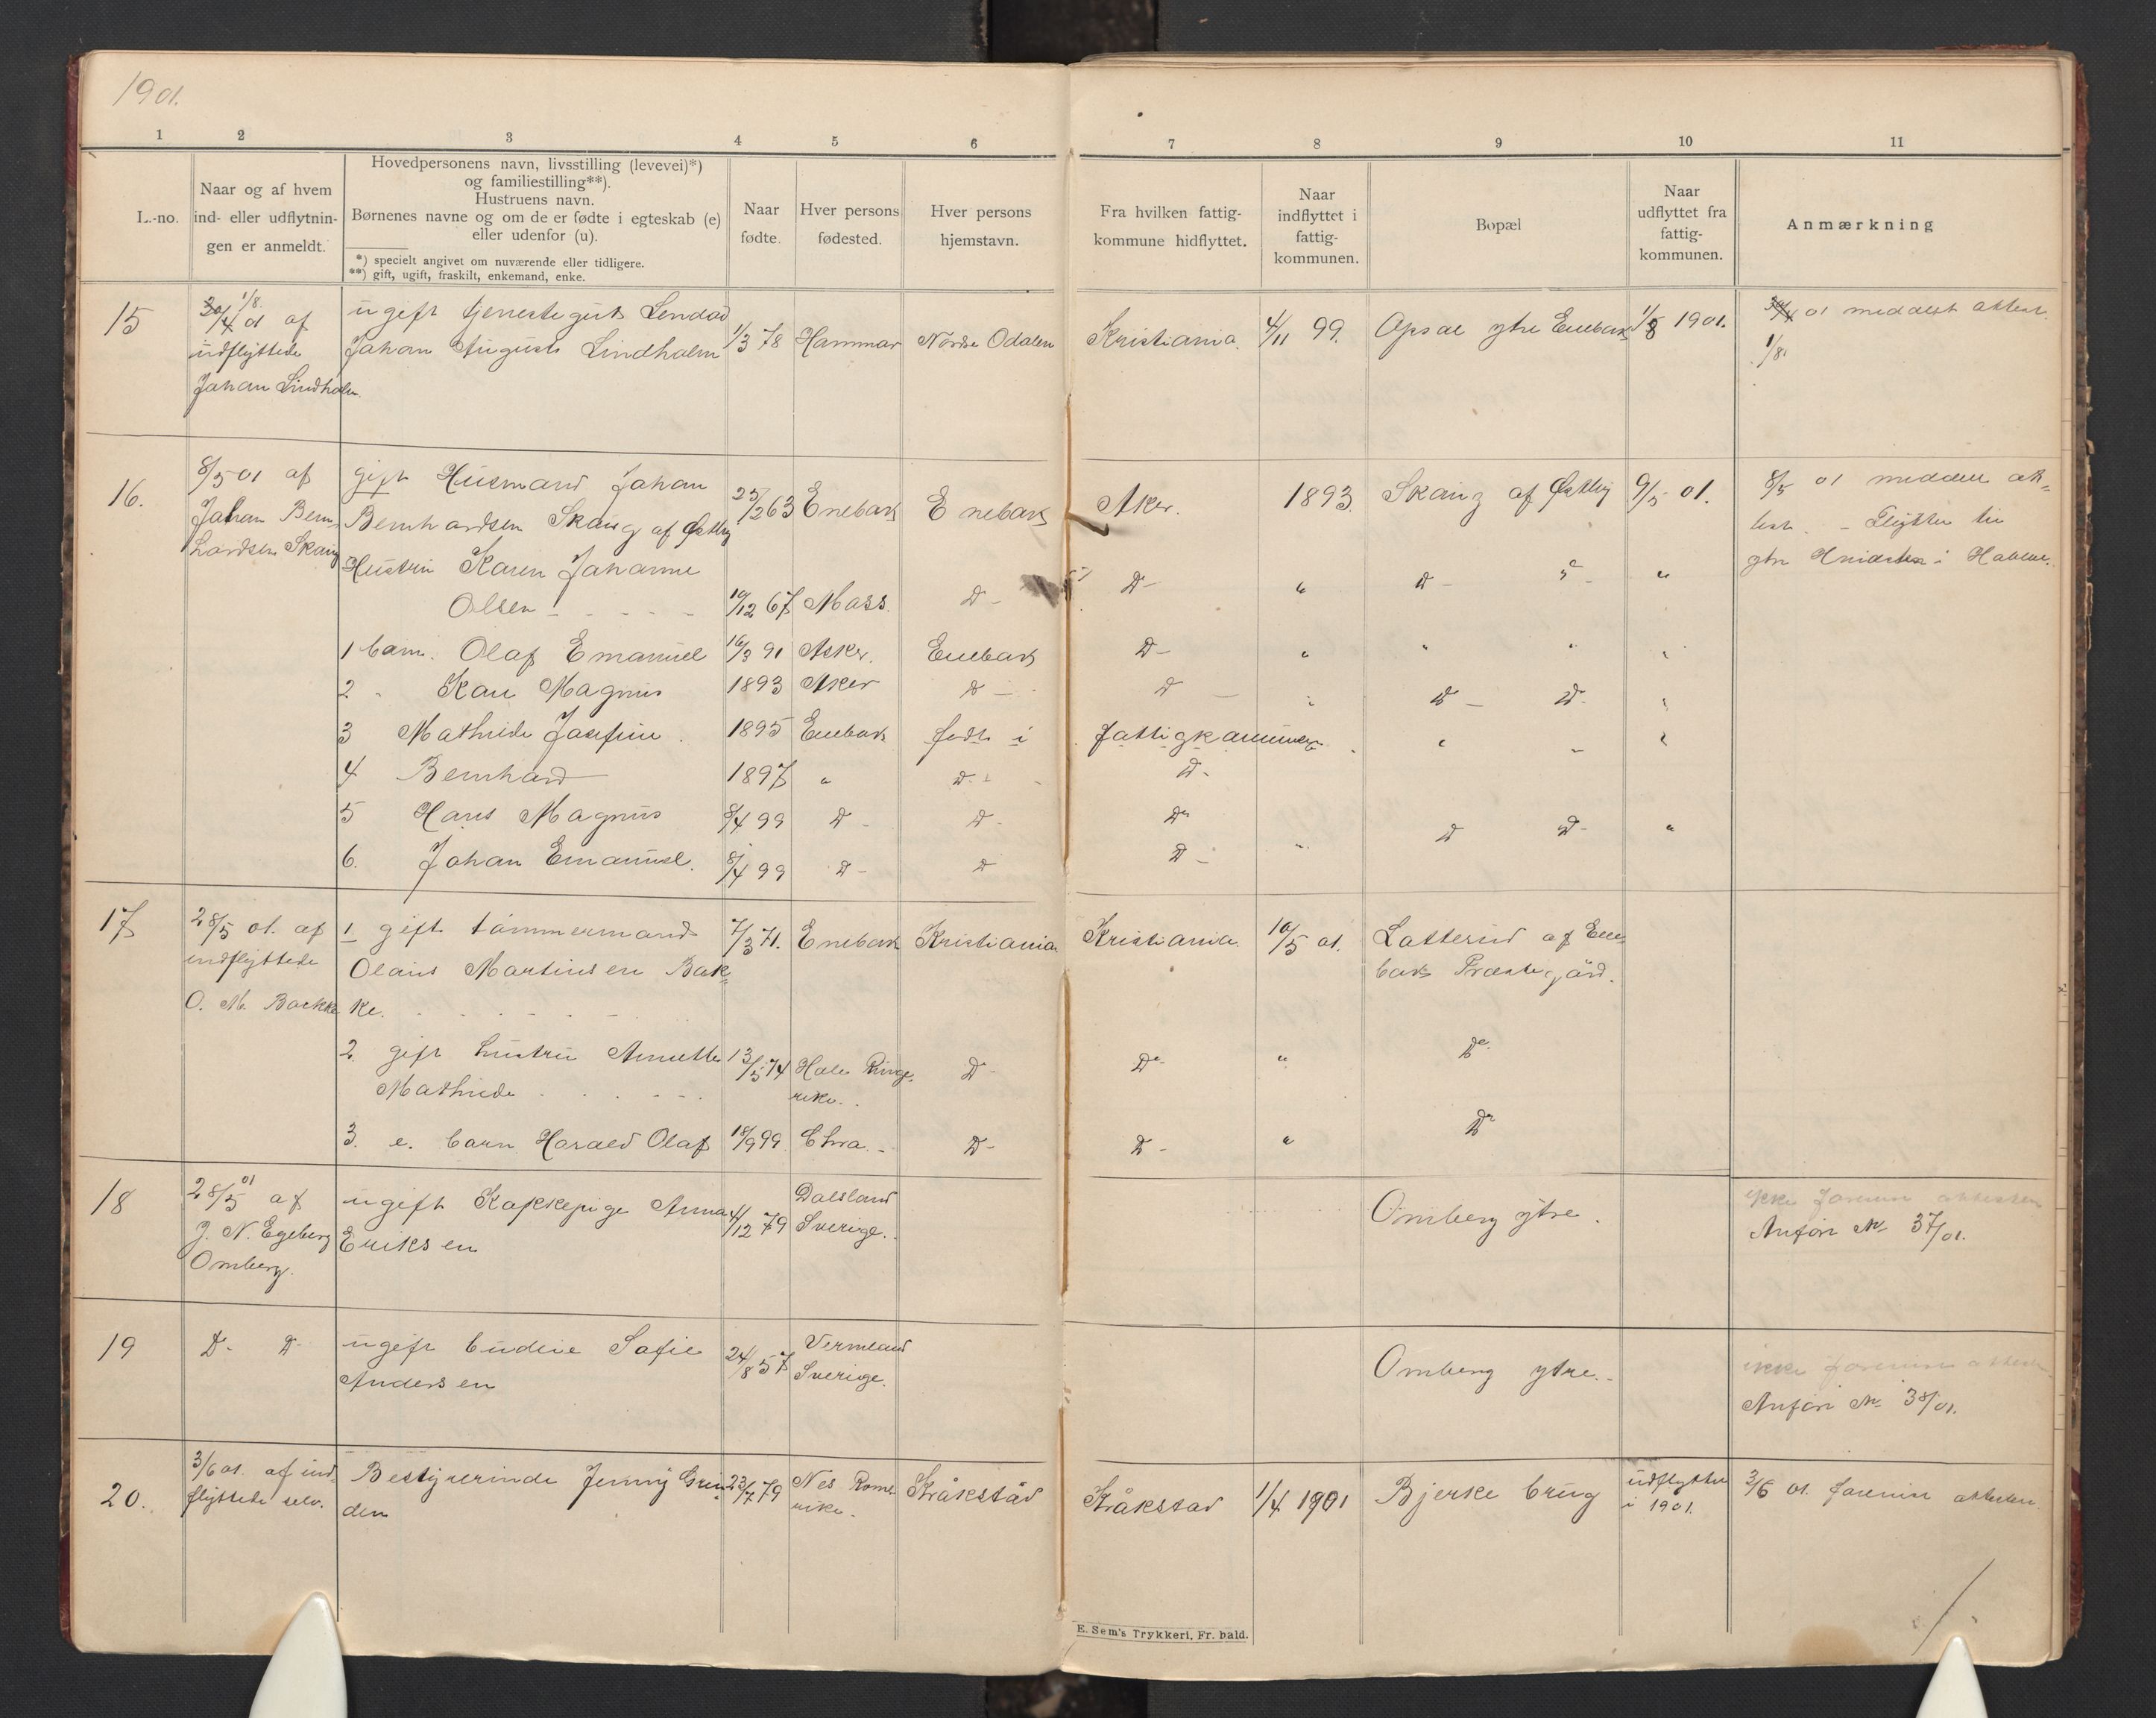 1901.
1 2 3 4 5 6 7 8 9 10 11
L.-no.
Naar og af hvem
ind- eller udflytnin-
gen er anmeldt.
Hovedpersonens navn, livsstilling (levevei)*)
og familiestilling**).
Hustruens navn.
Børnenes navne og om de er fødte i egteskab (e)
eller udenfor (u).
*) specielt angivet om nuværende eller tidligere.
**) gift, ugift, fraskilt, enkemand, enke.
Naar
fødte.
Hver persons
fødested.
Hver persons
hjemstavn.
Fra hvilken fattig-
kommune hidflyttet.
Naar
indflyttet i
fattig-
kommunen.
Bopæl
Naar
udflyttet fra
fattig-
kommunen.
Anmærkning
15
1/8
30/4 01 af
udflyttede
Johan Lindholm
ugift tjenestegut
Johan August Lindholm
1/3 78
Hammar
Nordre Odalen
Kristiania.
4/11 99.
Opsal ytre Enebak
1/8 1901.
30/4 01 meddelt attest.
1/8
16.
8/5 01 af
Johan Bern-
hardsen Skaug
gift Husmand Johan
Bernhardsen Skaug af Østby
25/2 63
Enebak
Enebak
Aker.
1893.
Skaug af Østby
9/5 01.
8/5 01 meddelt at-
test. - Flytter til
gtr i
Hustru Karen Johanne
Olsen
10/12 67
Moss.
D-
D-
"
D- D-
"
1 barn. Olaf Emanuel
16/3 91
Aker.
Enebak
D-
"
"
"
2 " Karl Magnus
1893
Aker
D-
D-
"
D- D-
"
3 Mathilde Josefine.
1895
Enebak
født i
fattigkommunen
"
-
"
4 Bernhard
1897
"
D-
D-
5 Hans Magnus
8/4 99
D-
D-
Do
D D-
"
6. Johan Emanuel.
8/4 99
D-
D
D-
17
28/5 01. af
indflyttede
O. M. Backke
1. gift tømmermand
Olaus Martinsen Bak-
ke.
7/3 71.
Enebak
Kristiania
Kristiania.
10/5 01.
Latterud af Ene-
bak Præstegård.
2. gift hustru Annette
Mathilde
13/5 74
Hole Ringe-
rike.
D-
Do-
"
Do.
3. e. barn Harald Olaf
18/9 99
Chra.-
D-
D-
"
Do
18
28/5 01 af
J. N. Egeberg
Omberg.
ugift Kokkepige Anna
Eriksen
4/12 79
Dalsland
Sverige.
Omberg ytre.
ikke forevist attesten
Anført No 37/01.
19
D- D-
ugift budeie Sofie
Andersen
24/8 57
Vermland
Sverige.
Omberg ytre.
ikke forevist attesten
Anført No 38/01.
20.
3/6 01. af ind-
flyttede selv.
Bestyrerinde Jenny Grin-
den
23/7 79
Nes Rome-
rike.
Kråkstad
Kråkstad
1/4 1901
Bjerke brug
udflyttet
i 1901.
3/6 01. forevist attesten.
E. Sem's Trykkeri, Fr. hald.